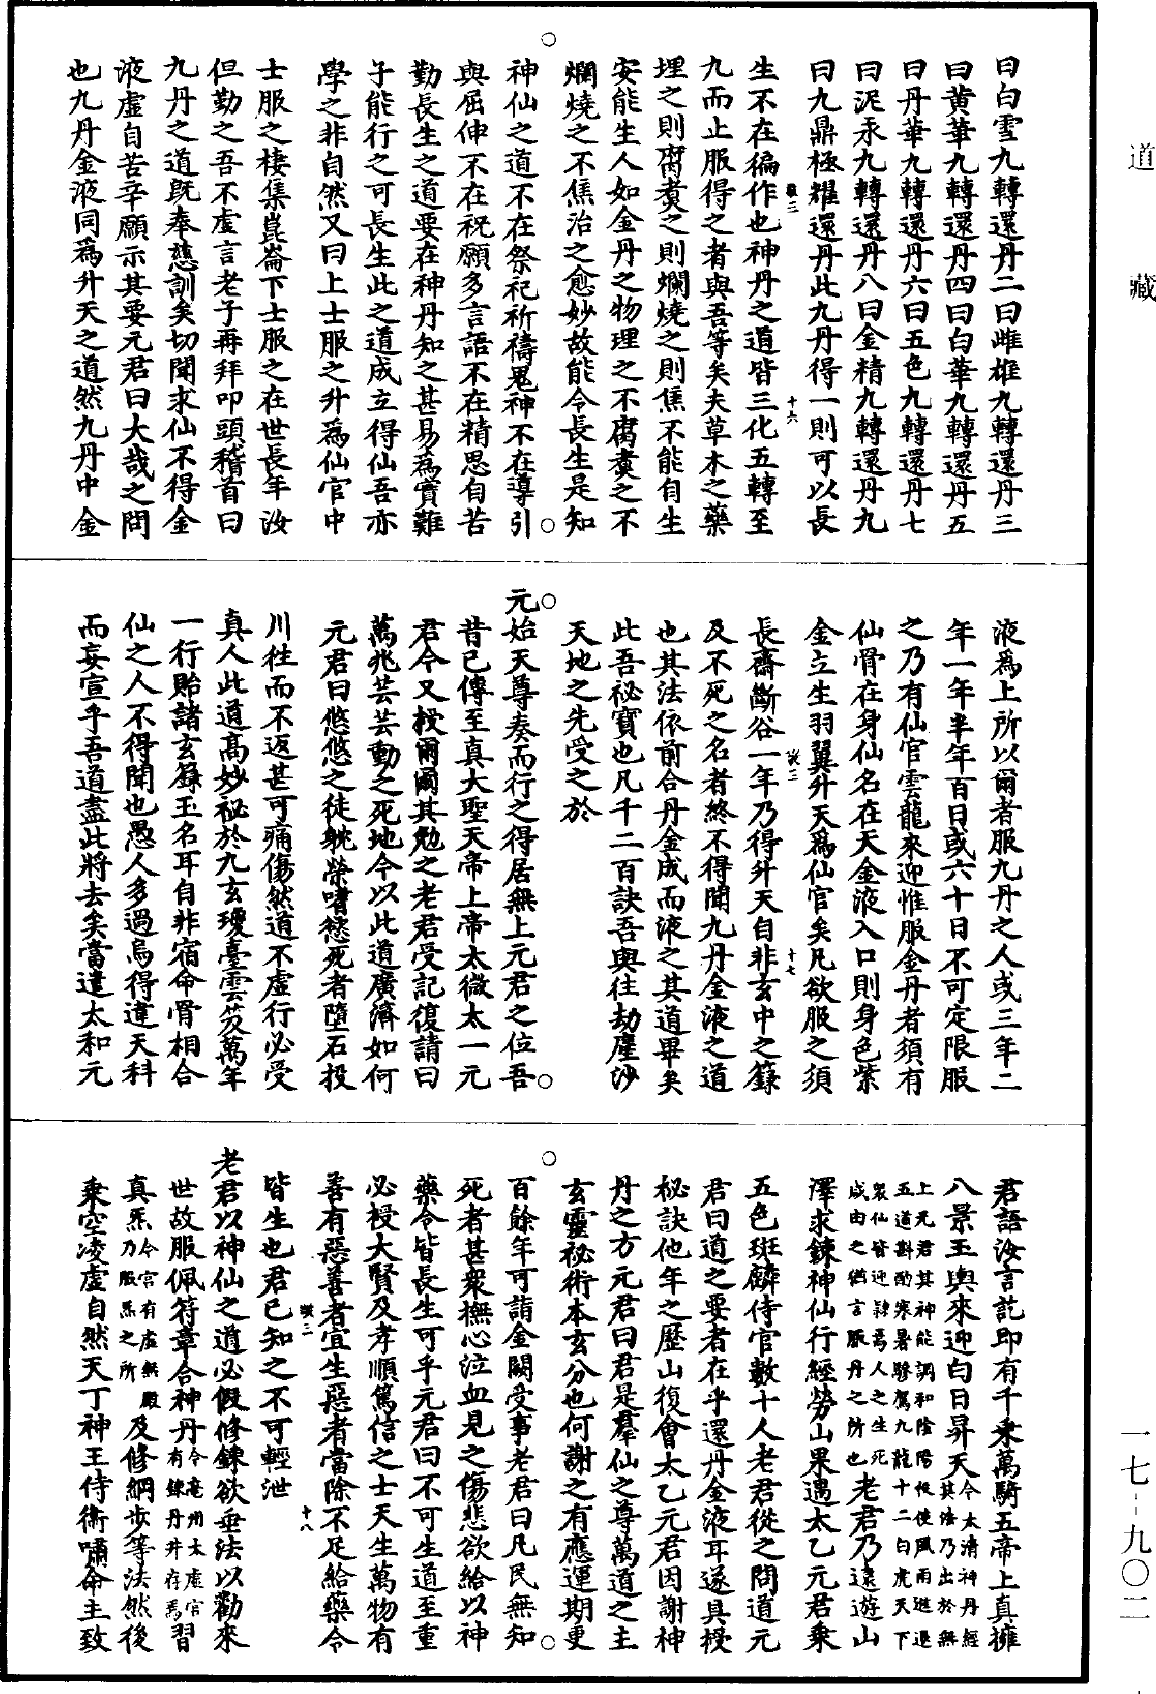 道藏
曰白雪九轉還丹二曰雌雄九轉還丹三
曰黃華九轉還丹四曰白華九轉還丹五
曰丹華九轉還丹六曰五色九轉還丹七
曰泥汞九轉還丹八曰金精九轉還丹九
曰九鼎極耀還丹此九丹得一則可以長
生不在徧作也神丹之道皆三化五轉至
九而止服得之者與吾等矣夫草木之藥
埋之則腐煑之則爛燒之則焦不能自生
安能生人如金丹之物理之不腐煑之不
爛燒之不焦治之愈妙故能令長生是知
神仙之道不在祭祀祈禱鬼神不在導引
與屈伸不在祝願多言語不在精思自苦
勤長生之道要在神丹知之甚易爲實難
子能行之可長生此之道成立得仙吾亦
學之非自然又曰上士服之升爲仙官中
士服之棲集崑崙下士服之在世長年汝
但勤之吾不虛言老子再拜叩頭稽首曰
九丹之道旣奉慈訓矣切聞求仙不得金
液虛自苦辛願示其要元君曰大哉之問
也九丹金液同爲升天之道然九丹中金
液爲上所以爾者服九丹之人或三年二
年一年半年百日或六十日不可定限服
之乃有仙官雲龍來迎惟服金丹者須有
仙骨在身仙名在天金液入口則身色紫
金立生羽翼升天爲仙官矣凡欲服之須
長齋斷谷一年乃得升天自非玄中之籙
及不死之名者終不得聞九丹金液之道
也其法依前合丹金成而液之其道畢矣
此吾祕寶也凡千二百訣吾與往劫塵沙
天地之先受之於
元始天尊奏而行之得居無上元君之位吾
昔已傳至真大聖天帝上帝太微太一元
君今又授爾爾其勉之老君受記復請曰
萬兆芸芸動之死地今以此道廣濟如何
元君曰悠悠之徒躭榮嗜慾死者墮石投
川往而不返甚可痛傷然道不虛行必受
真人此道高妙祕於九玄瓊臺雲笈萬年
一行貽諸玄籙玉名耳自非宿命骨相合
仙之人不得聞也愚人多過烏得違天科
而妄宣乎吾道盡此將去矣當遣太和元
君語汝言訖即有千乘萬騎五帝上真擁
八景玉輿來迎白日昇天今太清神丹經其法乃出於無
上元君其神能調和陰陽役使風雨進退
五道斟酌寒暑驂駕九龍十二白虎天下
衆仙皆迎隷焉人之生死
咸由之猶言服丹之所也老君乃遠遊山
澤求鍊神仙行經勞山果遇太乙元君乘
五色斑麟侍官數十人老君從之問道元
君曰道之要者在乎還丹金液耳遂具授
祕訣他年之歷山復會太乙元君因謝神
丹之方元君曰君是羣仙之尊萬道之主
玄靈祕術本玄分也何謝之有應運期更
百餘年可詣金闕受事老君曰凡民無知
死者甚衆撫心泣血見之傷悲欲給以神
藥令皆長生可乎元君曰不可生道至重
必授大賢及孝順篤信之士天生萬物有
善有惡善者宜生惡者當除不足給藥令
皆生也君已知之不可輕泄
老君以神仙之道必假修鍊欲垂法以勸來
世故服佩符章合神丹今亳州太虛官有鍊丹井存焉習
真炁今宫有虛無殿乃服炁之所及修綱步等法然後
乘空凌虛自然天丁神王侍衞嘯命主致
一七-九〇二